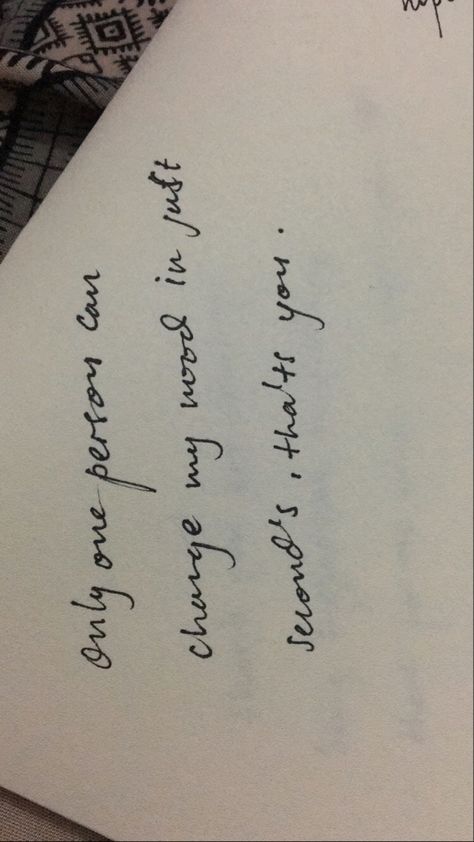 Only one person can
change my mood in just
second's, tha'ts you.